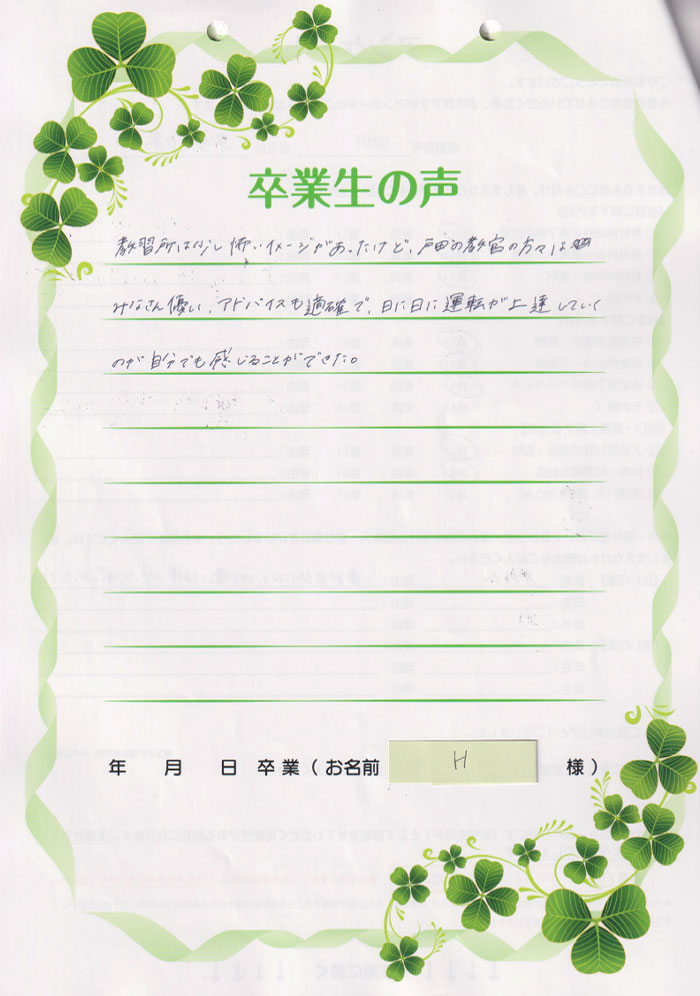 卒業生の声
教習所は少し怖いイメージがあったけど、戸田の教官の方々は
みなさん優しい、アドバイスも適確で、日に日に運転が上達していく
のが自分でも感じることができた。
年 月 日 卒業（お名前 H 様）